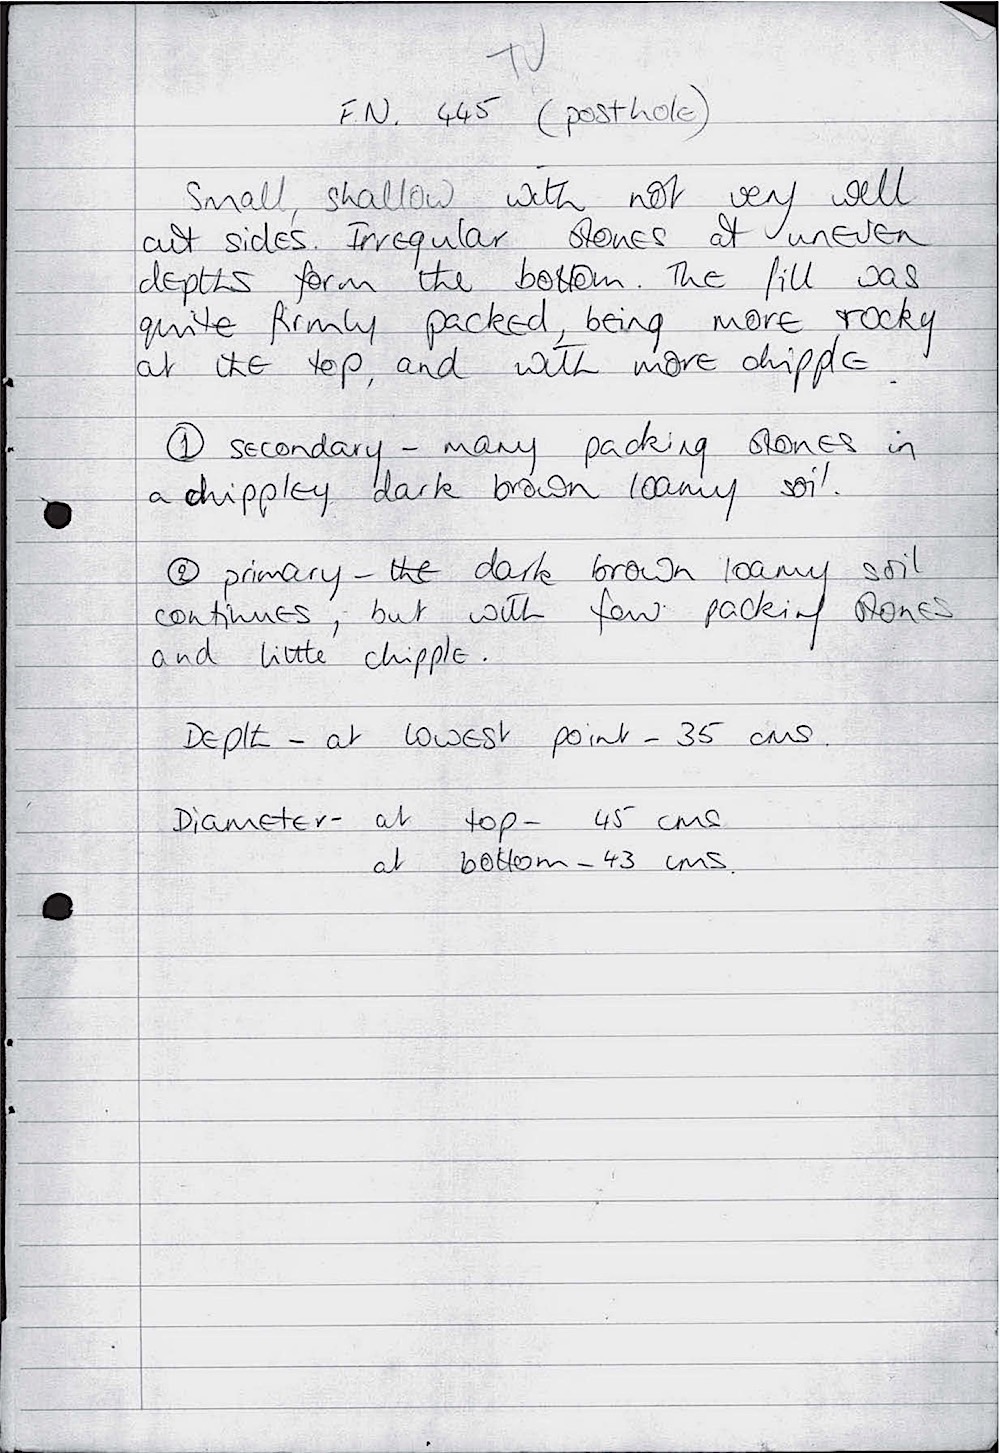 TU
F.N. 445 (posthole)
Small, shallow with not very well
cut sides. Irregular stones at uneven
depths form the bottom. The fill was
quite firmly packed, being more rocky
at the top, and with more chipple.
① secondary - many packing stones in
a chippley dark brown loamy soil.
② primary - the dark brown loamy soil
continues, but with few packing stones
and little chipple.
Depth - at lowest point - 35 cms.
Diameter - at top - 45 cms
at bottom - 43 cms.